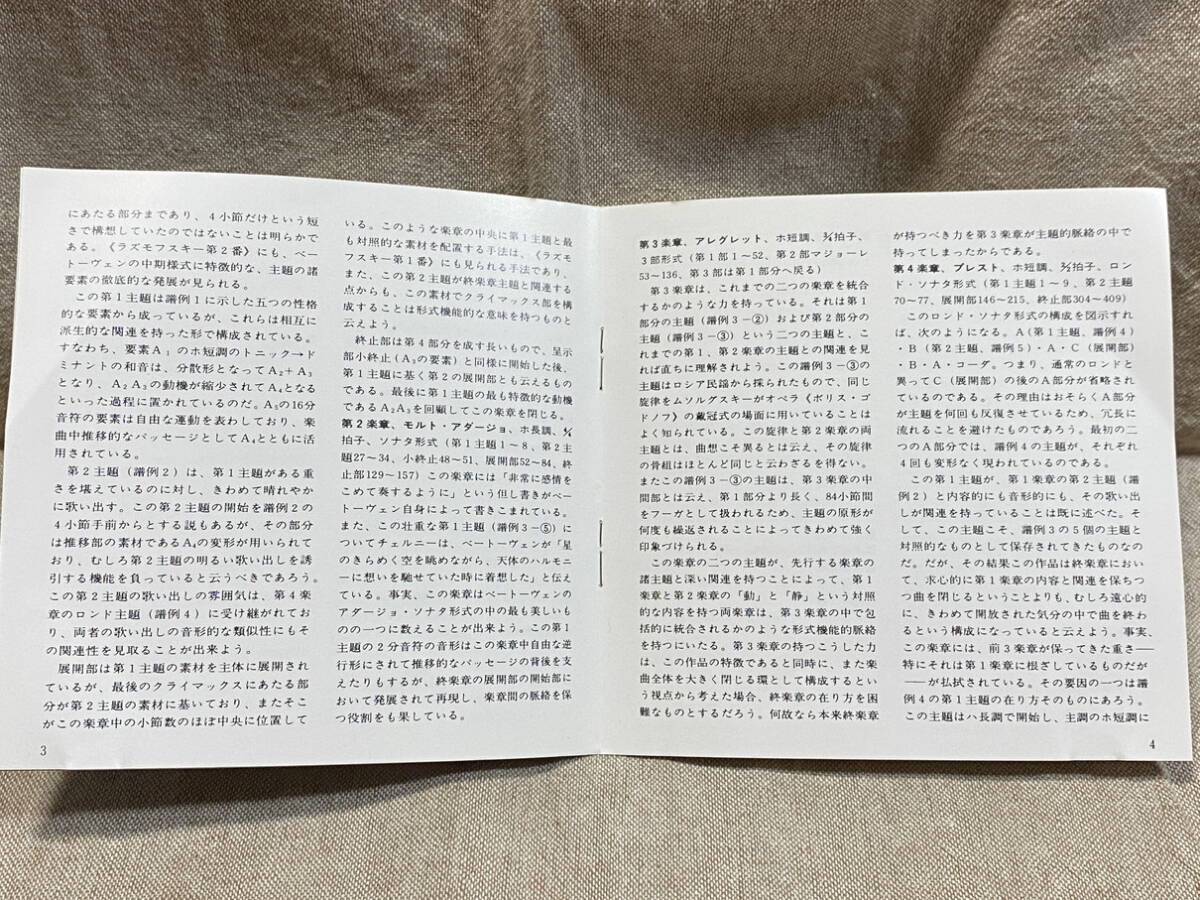 にあたる部分まであり、4小節だけという短
さで構想していたのではないことは明らかで
ある。《ラズモフスキー第2番》にも、ベー
トーヴェンの中期様式に特徴的な、主題の諸
要素の徹底的な発展が見られる。
この第1主題は譜例1に示した五つの性格
的な要素から成っているが、これらは相互に
派生的な関連を持った形で構成されている。
すなわち、要素A₁のホ短調のトニック→ド
ミナントの和音は、分散形となってA₂+A₃
となり、A₂A₃の動機が縮少されてA₄となる
といった過程に置かれているのだ。A₅の16分
音符の要素は自由な運動を表わしており、楽
曲中推移的なパッセージとしてA₄とともに活
用されている。
第2主題(譜例2)は、第1主題がある重
さを堪えているのに対し、きわめて晴れやか
に歌い出す。この第2主題の開始を譜例2の
4小節手前からとする説もあるが、その部分
は推移部の素材であるA₄の変形が用いられて
おり、むしろ第2主題の明るい歌い出しを誘
引する機能を負っていると云うべきであろう。
この第2主題の歌い出しの雰囲気は、第4楽
章のロンド主題(譜例4)に受け継がれてお
り、両者の歌い出しの音形的な類似性にもそ
の関連性を見取ることが出来よう。
展開部は第1主題の素材を主体に展開され
ているが、最後のクライマックスにあたる部
分が第2主題の素材に基いており、またそこ
がこの楽章中の小節数のほぼ中央に位置して
3
いる。このような楽章の中央に第1主題と最
も対照的な素材を配置する手法は、《ラズモ
フスキー第1番》にも見られる手法であり、
また、この第2主題が終楽章主題と関連する
点からも、この素材でクライマックス部を構
成することは形式機能的な意味を持つものと
云えよう。
終止部は第4部分を成す長いもので、呈示
部小終止(A₃の要素)と同様に開始した後、
第1主題に基く第2の展開部とも云えるもの
である。最後に第1主題の最も特徴的な動機
であるA₂A₃を回顧してこの楽章を閉じる。
第2楽章、モルト・アダージョ、ホ長調、4/4
拍子、ソナタ形式(第1主題1~8、第2主
題27~34、小終止48~51、展開部52~84、終
止部129~157)この楽章には「非常に感情を
こめて奏するように」という但し書きがベー
トーヴェン自身によって書きこまれている。
また、この壮重な第1主題(譜例3-⑤)に
ついてチェルニーは、ベートーヴェンが「星
のきらめく空を眺めながら、天体のハルモニ
ーに想いを馳せていた時に着想した」と伝え
ている。事実、この楽章はベートーヴェンの
アダージョ・ソナタ形式の中の最も美しいも
のの一つに数えることが出来よう。この第1
主題の2分音符の音形はこの楽章中自由な逆
行形にされて推移的なパッセージの背後を支
えたりもするが、終楽章の展開部の開始部に
おいて発展されて再現し、楽章間の脈絡を保
つ役割をも果している。
第3楽章、アレグレット、ホ短調、3/4拍子、
3部形式(第1部1~52、第2部マジョーレ
53~136、第3部は第1部分へ戻る)
第3楽章は、これまでの二つの楽章を統合
するかのような力を持っている。それは第1
部分の主題(譜例3-②)および第2部分の
主題(譜例3-③)という二つの主題と、こ
れまでの第1、第2楽章の主題との関連を見
れば直ちに理解されよう。この譜例3-③の
主題はロシア民謡から採られたもので、同じ
旋律をムソルグスキーがオペラ《ボリス・ゴ
ドノフ》の戴冠式の場面に用いていることは
よく知られている。この旋律と第2楽章の両
主題とは、曲想こそ異るとは云え、その旋律
の骨組はほとんど同じと云わざるを得ない。
またこの譜例3-③の主題は、第3楽章の中
間部とは云え、第1部分より長く、84小節間
をフーガとして扱われるため、主題の原形が
何度も繰返されることによってきわめて強く
印象づけられる。
この楽章の二つの主題が、先行する楽章の
諸主題と深い関連を持つことによって、第1
楽章と第2楽章の「動」と「静」という対照
的な内容を持つ両楽章は、第3楽章の中で包
括的に統合されるかのような形式機能的脈絡
を持つにいたる。第3楽章の持つこうした力
は、この作品の特徴であると同時に、また楽
曲全体を大きく閉じる環として構成するとい
う視点から考えた場合、終楽章の在り方を困
難なものとするだろう。何故なら本来終楽章
が持つべき力を第3楽章が主題的脈絡の中で
持ってしまったからである。
第4楽章、プレスト、ホ短調、2/2拍子、ロン
ド・ソナタ形式(第1主題1~9、第2主題
70~77、展開部146~215、終止部304~409)
このロンド・ソナタ形式の構成を図示すれ
ば、次のようになる。A(第1主題、譜例4)
・B(第2主題、譜例5)・A・C(展開部)
・B・A・コーダ。つまり、通常のロンドと
異ってC(展開部)の後のA部分が省略され
ているのである。その理由はおそらくA部分
が主題を何回も反復させているため、冗長に
流れることを避けたものであろう。最初の二
つのA部分では、譜例4の主題が、それぞれ
4回も変形なく現われているのである。
この第1主題が、第1楽章の第2主題(譜
例2)と内容的にも音形的にも、その歌い出
しが関連を持っていることは既に述べた。そ
して、この主題こそ、譜例3の5個の主題と
対照的なものとして保存されてきたものなの
だ。だが、その結果この作品は終楽章におい
て、求心的に第1楽章の内容と関連を保ちつ
つ曲を閉じるということよりも、むしろ遠心的
に、きわめて開放された気分の中で曲を終わ
るという構成になっていると云えよう。事実、
この楽章には、前3楽章が保ってきた重さ──
特にそれは第1楽章に根ざしているものだが
──が払拭されている。その要因の一つは譜
例4の第1主題の在り方そのものにあろう。
この主題はハ長調で開始し、主調のホ短調に
4